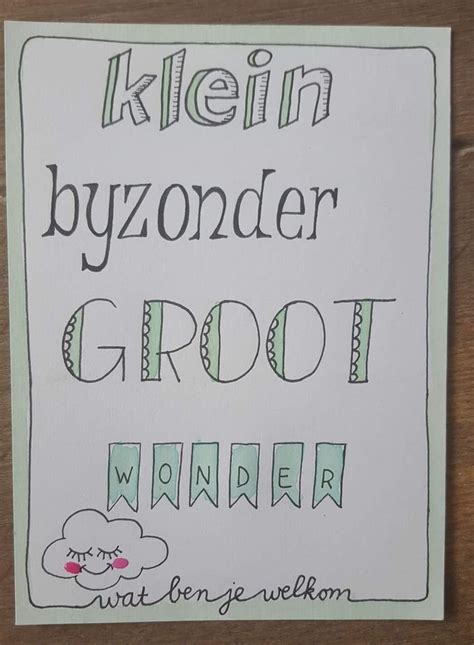 klein
byzonder
GROOT
WONDER
wat ben je welkom